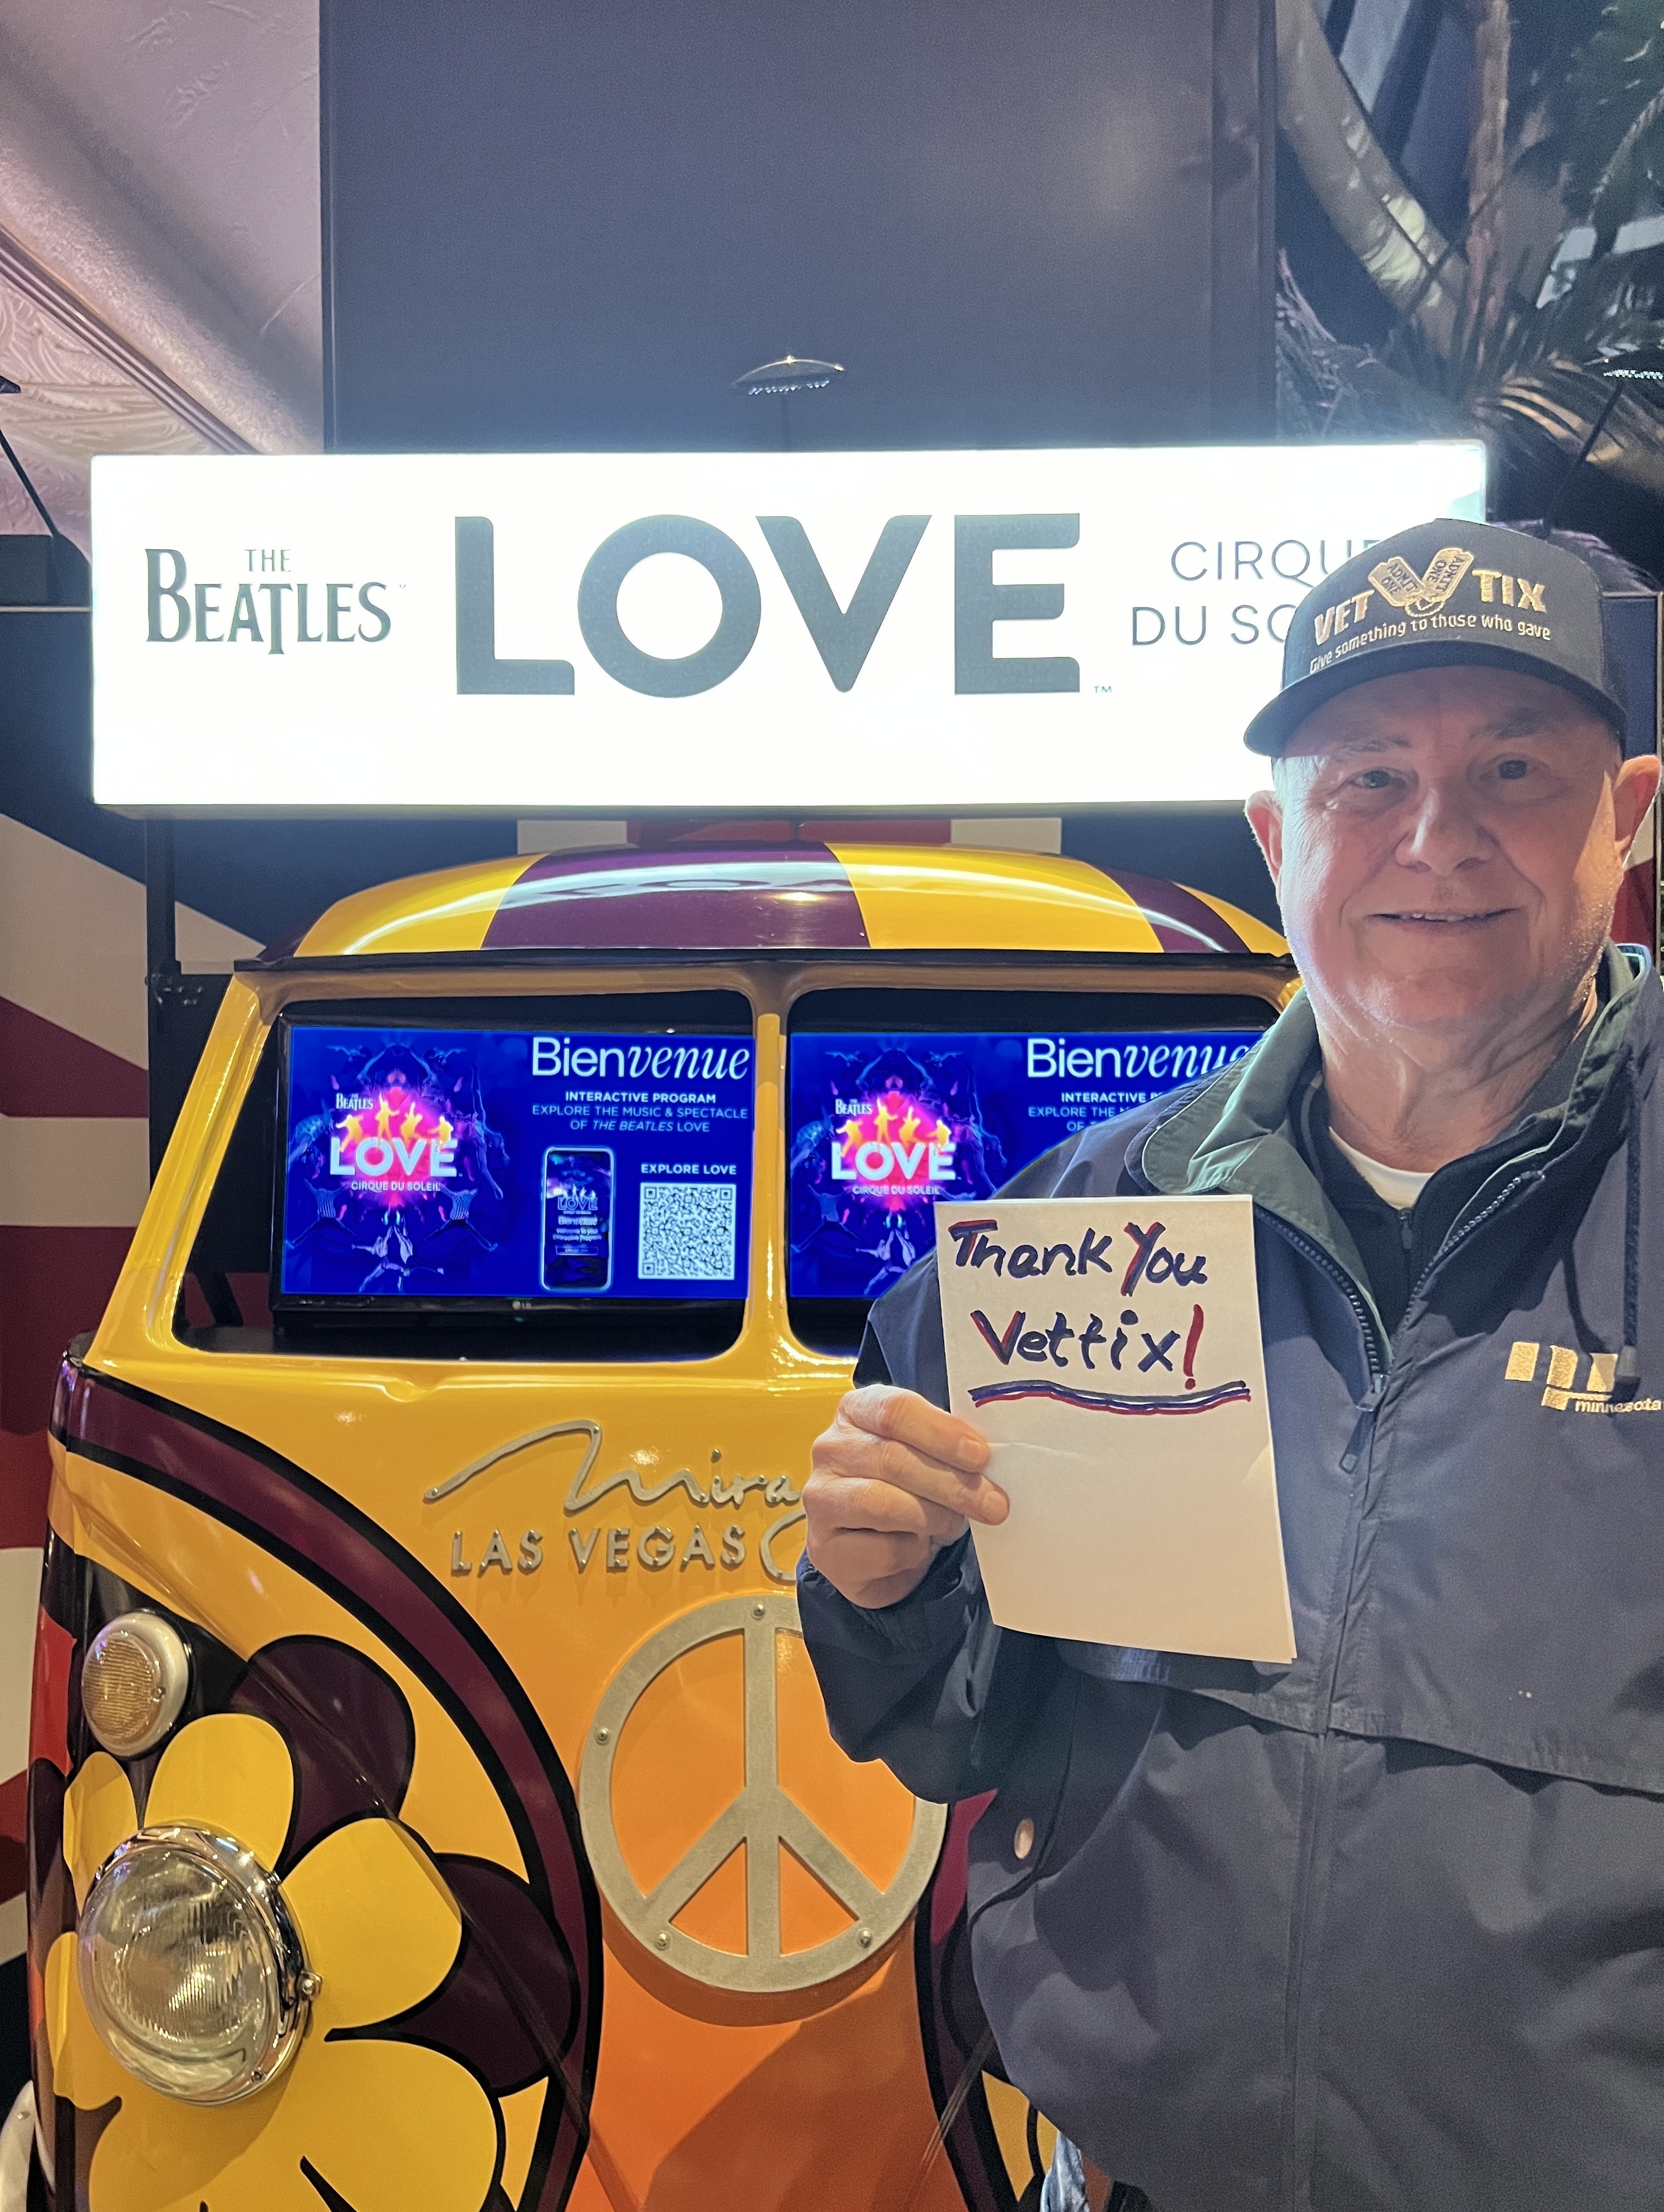 THE
BEATLES
LOVE™
CIRQUE
DU SO
VET TIX
ADMIT ONE
Give something to those who gave
Bienvenue
INTERACTIVE PROGRAM
EXPLORE THE MUSIC & SPECTACLE
OF THE BEATLES LOVE
EXPLORE LOVE
THE
BEATLES
LOVE
CIRQUE DU SOLEIL
LOVE
Bienvenue
LG
Bienvenue
INTERACTIVE
EXPLORE THE
OF
THE
BEATLES
LOVE
CIRQUE DU SOLEIL
Thank You
Vettix!
minnesota
Mira
LAS VEGAS